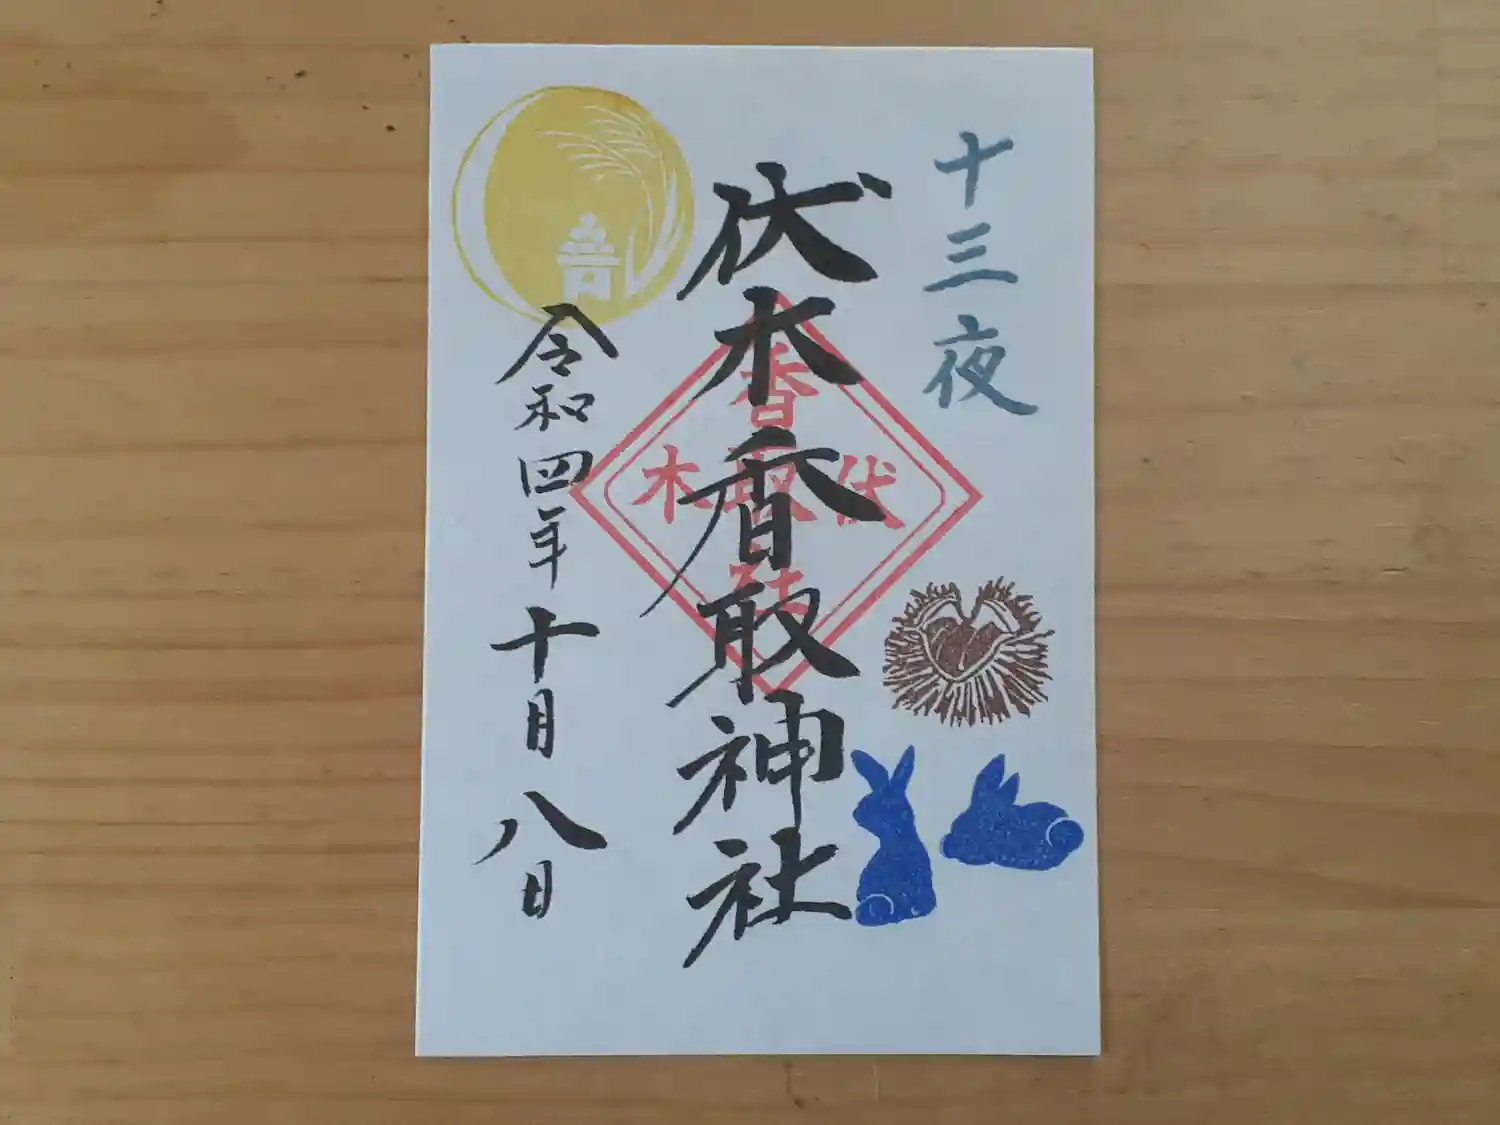 十三夜
伏木香取神社
香
伏取木
社
令和四年十月八日